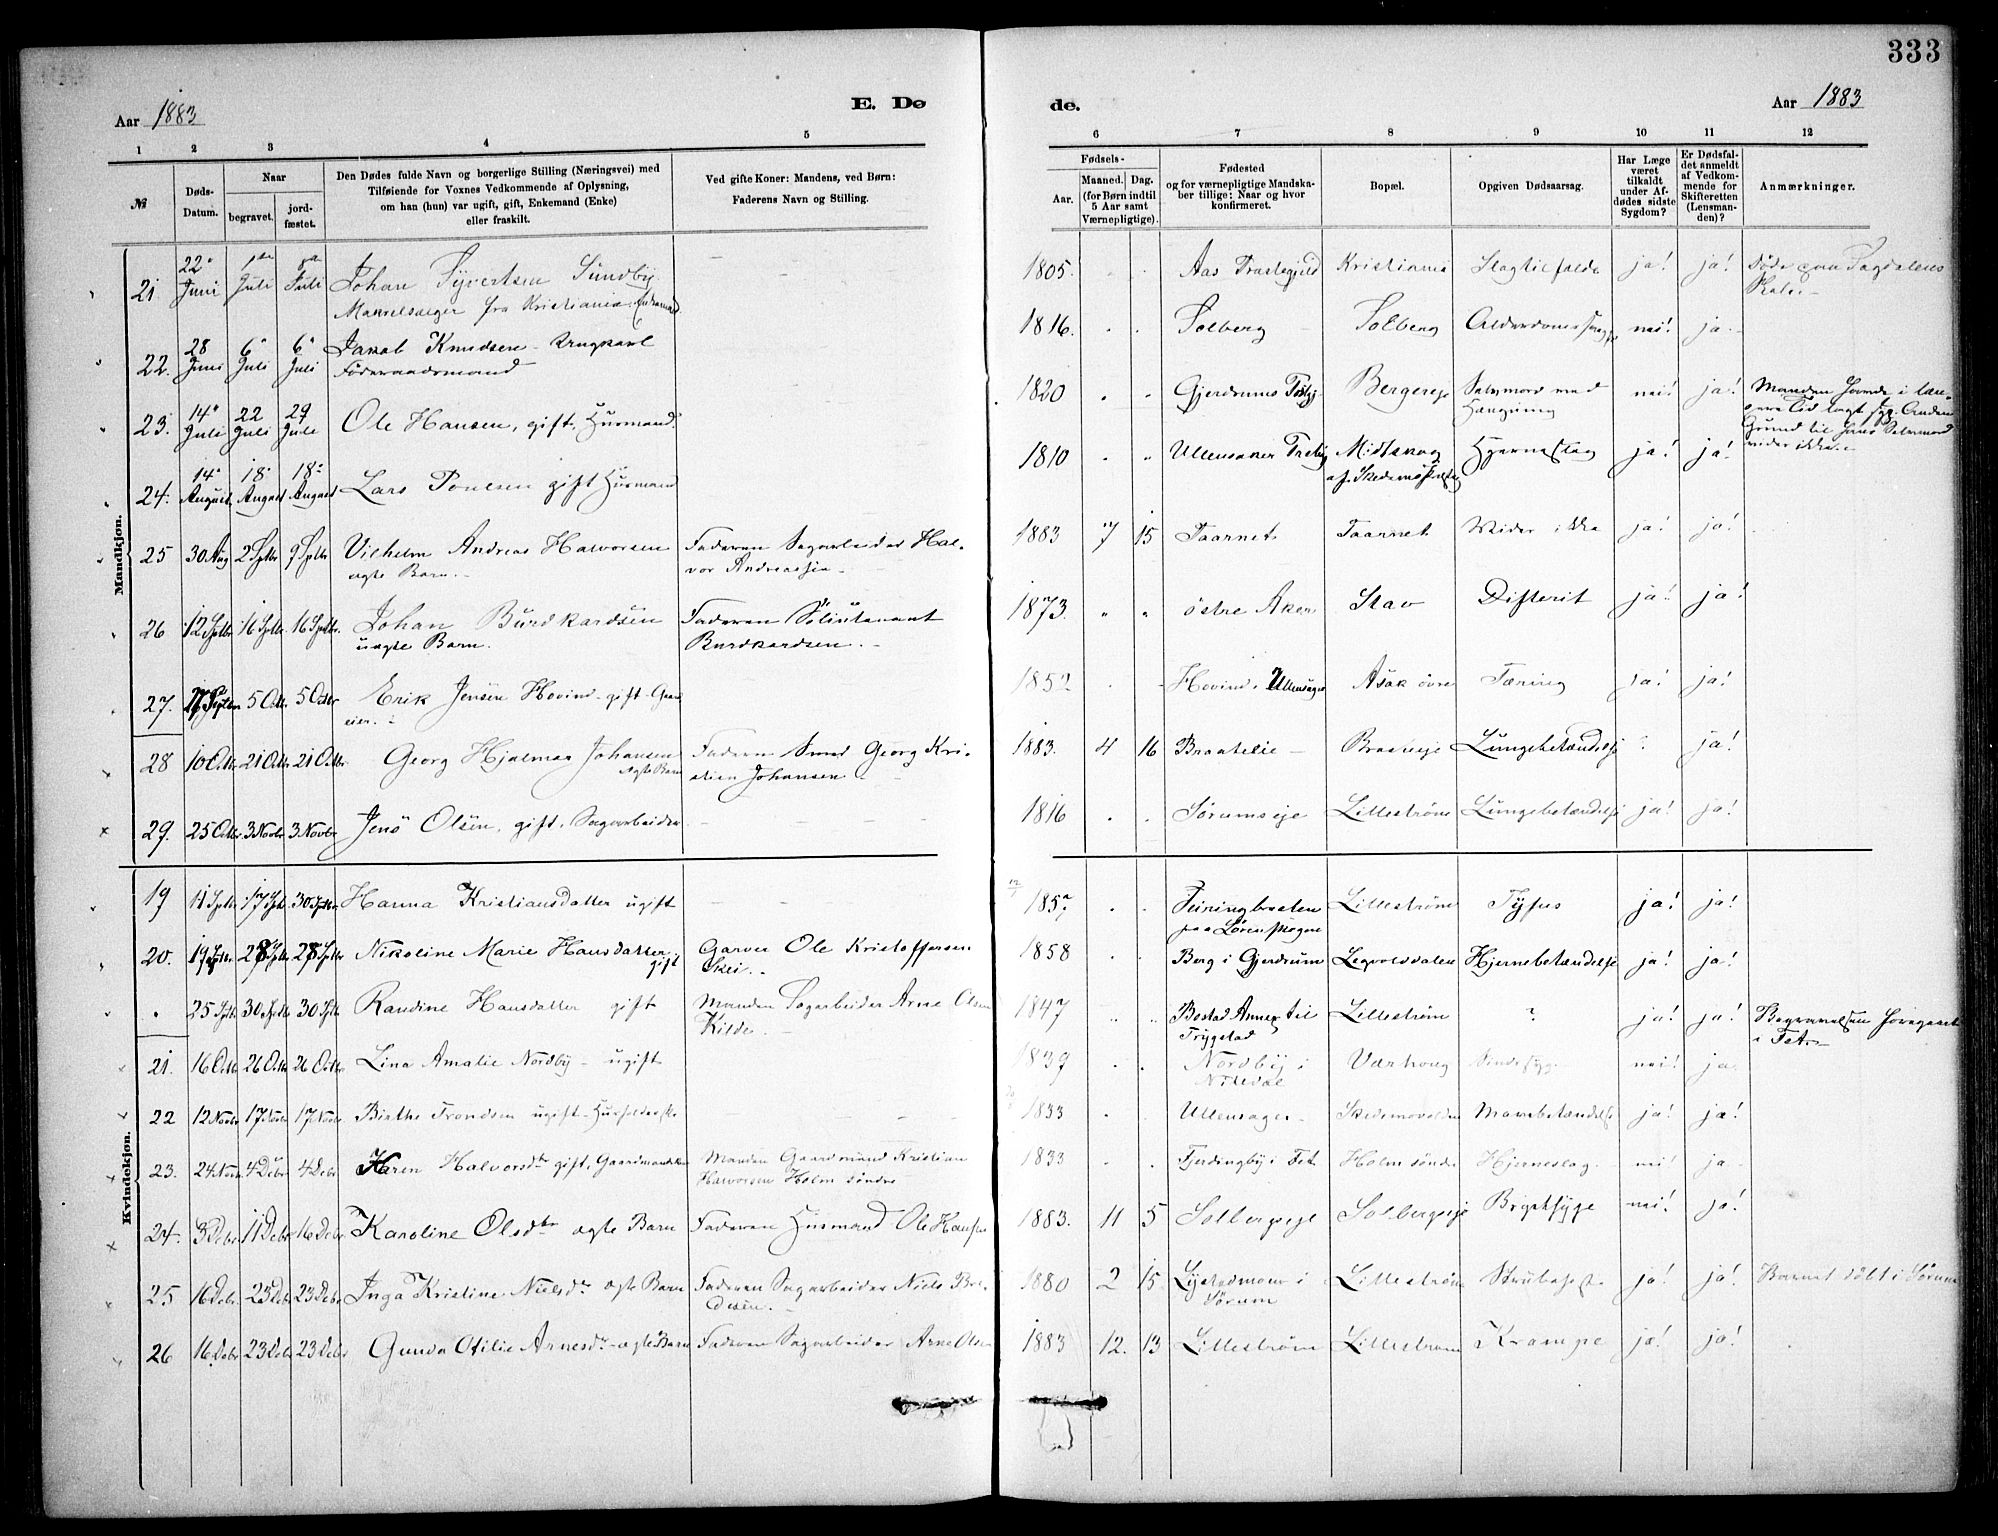 333
Aar 1883
E. Dø
de.
Aar 1883
1 2 3 4 5 6 7 8 9 10 11 12
№
Døds-
Datum.
Naar
begravet.
jord-
fæstet.
Den Dødes fulde Navn og borgerlige Stilling (Næringsvei) med
Tilføiende for Voxnes Vedkommende af Oplysning,
om han (hun) var ugift, gift, Enkemand (Enke)
eller fraskilt.
Ved gifte Koner: Mandens, ved Børn:
Faderens Navn og Stilling.
Fødsels-
Aar.
Maaned. Dag.
(for Børn indtil
5 Aar samt
Værnepligtige).
Fødested
og for værnepligtige Mandska-
ber tillige: Naar og hvor
konfirmeret.
Bopæl.
Opgiven Dødsaarsag.
Har Læge
været
tilkaldt
under Af-
dødes sidste
Sygdom?
Er Dødsfal-
det anmeldt
af Vedkom-
mende for
Skifteretten
(Lensman-
den)?
Anmærkninger.
Mandkjøn.
21 22 Juni Juli Juli Johan Syvertsen Sundby 1805. Aas Kristiania Slagtilfælde ja! ja!
fra Kristiania
22. 28 Juni 6 Juli 6 Juli Jakob Knudsen 1816. Solberg Solberg nei! ja
Føderaadsmand
23. 14 Juli 22 Juli 29 Juli Ole Hansen, gift, Husmand 1820 Gjerdrums Selvmord ved nei! ja! Manden havde i læn-
Hængning gere Tid
Grund til hans Selvmord
vides ikke.
24. 14 August 18 August 18 August Lars gift Husmand 1810 Ullensaker Midtskog Hjerneslag ja! ja!
25 30 Aug 2 Septbr 9 Septbr Vilhelm Andreas Halvorsen Faderen Sagarbeider Hal- 1883 7 15 Taarnet Taarnet Vides ikke ja! ja!
ægte Barn. vor
26 12 Septbr 16 Septbr 16 Septbr. Johan Burdkardsen Faderen 1873. østre Aker Stav Difterit ja! ja!
uægte Barn. Burdkardsen.
27. 5 Octbr. 5 Octbr Erik Jensen Hovind - gift - Gaard 1852 Hovind i Asak øvre Tæring ja! ja!
eier.
28 10 Octbr 21 Octbr 21 Octbr. Georg Hjalmar Johansen Faderen Smed Georg Kri- 1883. 4 16 Braatelie Lungebetændelse ja!
ægte Barn stien Johansen
29. 25 Octbr. 3 Novbr 3 Novbr Jens Olsen, gift, Sagarbeider 1816 Sørumseje Lillestrøm Lungebetændelse ja! ja!
Kvindekjøn.
19 11 Septbr 17 Septbr 30 Septbr Hanna Kristiansdatter ugift 1857 Lillestrøm Tyfus ja! ja!
paa Lørenskogen
20. 19 Septbr 28 Septbr 28 Septbr Nikoline Marie Hansdatter Garver Ole Kristoffersen 1858 Berg i Gjerdrum Leqvoldsdalen Hjernebetændelse ja! ja!
gift Skei.
25 Septbr 30 Septbr 30 Septbr Randine Hansdatter gift Manden Sagarbeider Arne Olsen 1847 Annex til Lillestrøm ? ja! ja! Begravelsen foregaaet
Kilde. Trygstad i Fet.
21. 16 Octbr 26 Octbr 26 Octbr Lina Amalie Nordby - ugift 1839 Nordby i Sindssyg nei! ja
Nitedal
22 12 Novbr 17 Novbr 17 Novbr. Birthe Trondsen ugift 1833 Ullensager Mavebetændelse ja! ja!
23. 24 Novbr 4 Debr 4 Debr Karen Halvorsdtr gift, Gaardmandskone Manden Gaardmand Kristian 1833 Fjerdingby i Fet Holm søndre Hjerneslag nei! ja
Halvorsen Holm søndre
24. 3 Debr 11 Debr 16 Debr Karoline Olsdtr ægte Barn Faderen Husmand Ole Hansen 1883. 11 5 Solbergseje Solbergseje Brystsyge nei! ja!
25 16 Debr. 23 Debr 23 Debr Inga Kristine Nielsdtr ægte Barn Faderen Sagarbeider Niels 1880 2 15 Lystadmoen i Lillestrøm Strubehoste ja! ja! Barnet døbt i Sørum
Sørum
26 16 Debr 23 Debr 23 Debr Gunda Otilie Arnesdtr - ægte Barn Faderen Sagarbeider Arne Olsen 1883 12. 13 Lillestrøm Lillestrøm Krampe ja! ja!